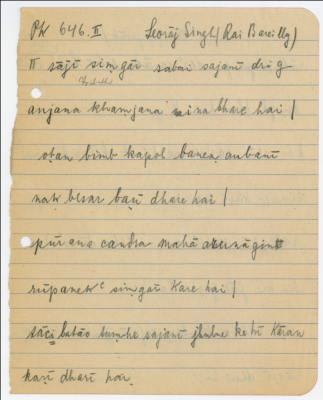 PK 646.II Seorāj Singh (Rai Bareilly)
II sājī siṃgār sabai sajanī dṛig
anjana khamjana naina bhare hai |
oṭan bimb kapol banen anbanī
nak besar banī dhare hai |
pūrana candra mahā
rūpanek siṃgār Kare hai |
batāo tumhe sajanī jhulne ke hī Kāran
karī dharī par